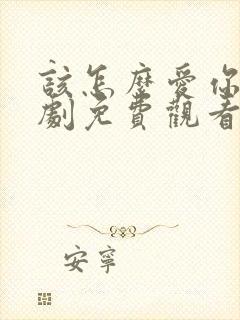 該怎麼愛你
劇免費觀看
安寧